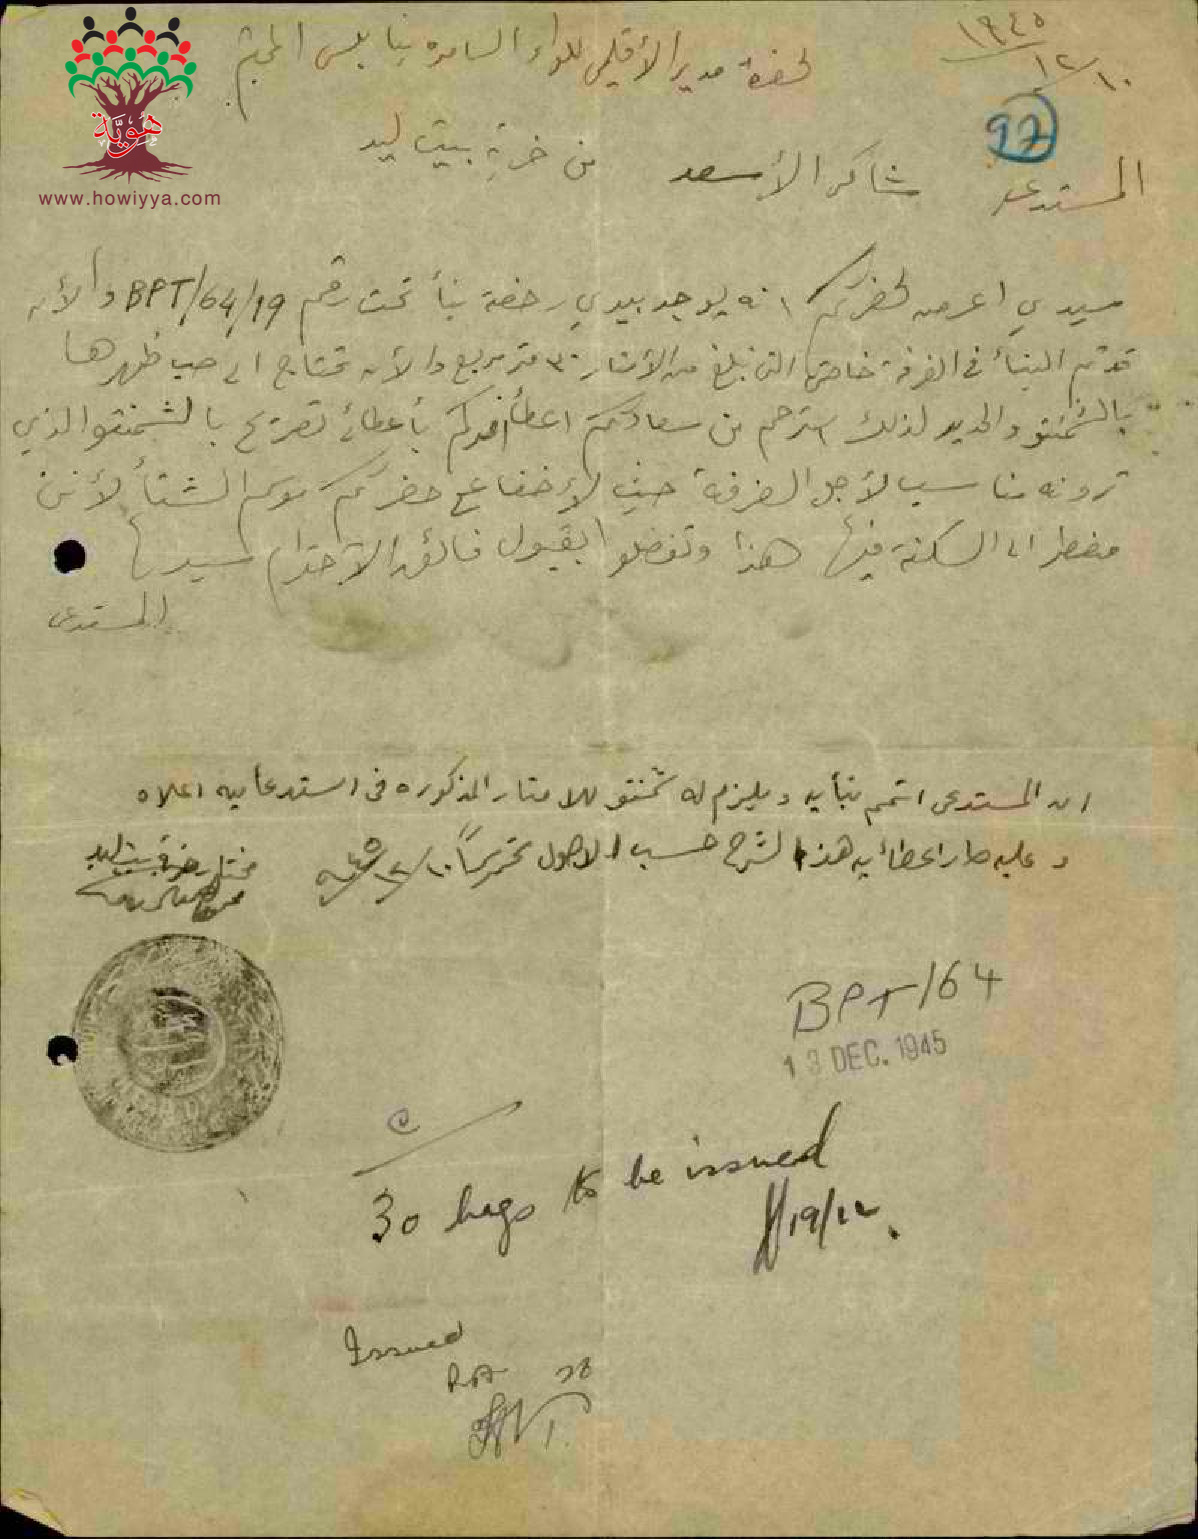 ١٩٤٥
١٠/١٢
لحضرة مدير الأقليمي للواء السامره بنابلس المحترم
97
هوية
www.howiyya.com
المستدعي شاكر الأسعد من خربة بيت ليد
سيدي اعرض لحضرتكم انه يوجد بيدي رخصة بنأ تحت رقم BPT/64/19 والأن
قد تم البنأ في الغرفة خاصتي التي تبلغ من الأمتار ٣٠ متر مربع والأن تحتاج الى صب ظهرها
بالشمنتو والحديد لذلك استرحم من سعادتكم اعطأ امركم بأعطائي تصريح بالشمنتو الذي
ترونه مناسب لأجل الغرفة حيث حضرتكم موسم الشتأ لأنني
مضطر الى السكنة فيها هذا وتفضلوا بقبول فائق الأحترام سيدي
المستدعي
ان المستدعي اتمم بنأيه ويلزم له شمنتو للامتار المذكوره في استدعايه اعلاه
وعليه صار اعطائه هذا الشرح حسب الاصول تحريراً ١٠/١٢/٩٤٥
مختار خربة بيت ليد
BPT/64
13 DEC. 1945
30 bags to be issued
19/12.
Issued